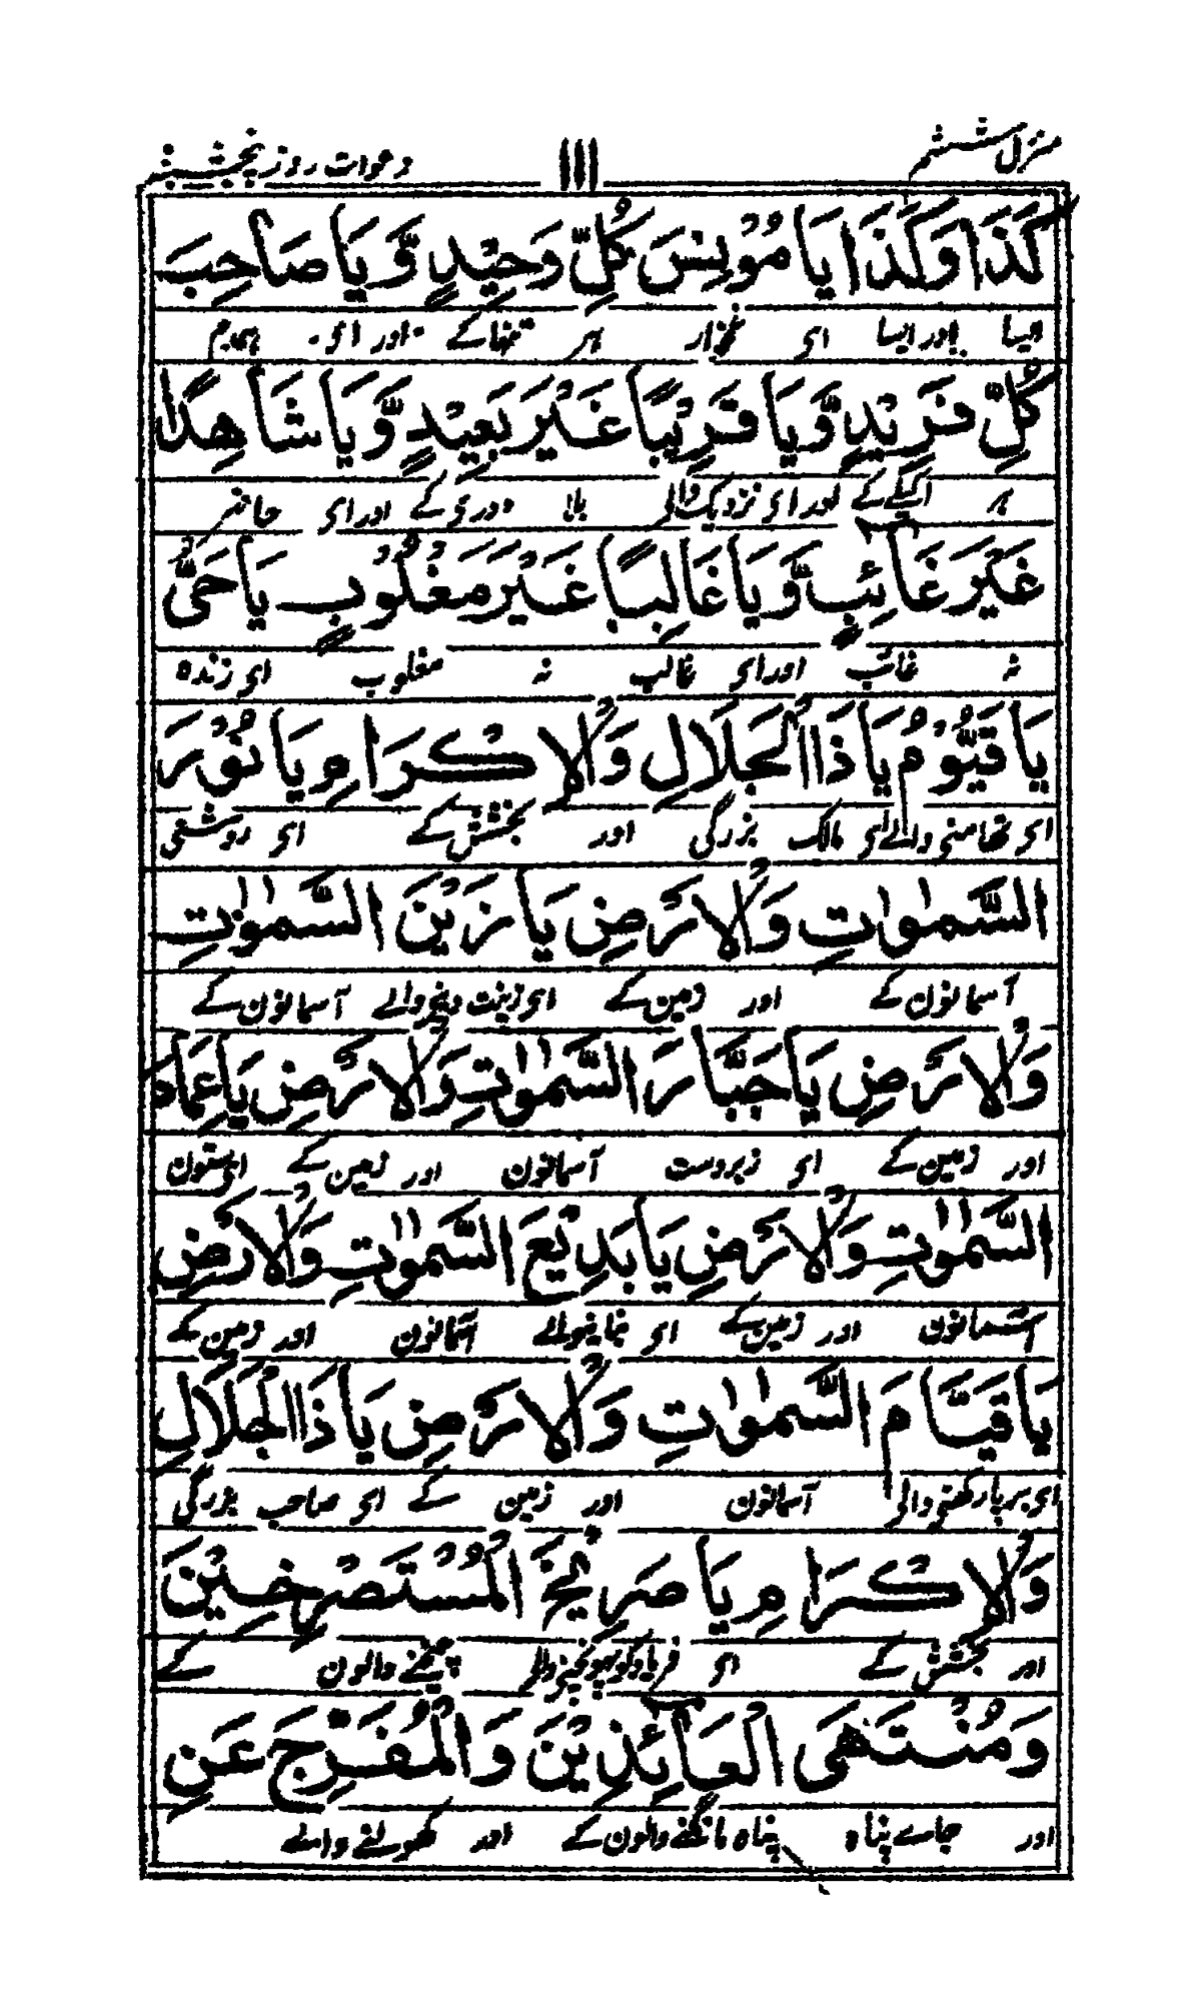 منزل ششم ١١١ دعوات روز پنجشنبه
كَذَا وَكَذَا يَا مُوْنِسَ كُلِّ وَحِيْدٍ وَّيَا صَاحِبَ
ایسا اور ایسا ای غمخوار ہر تنہا کے اور ای ہمدم
كُلِّ فَرِيْدٍ وَّيَا قَرِيْبًا غَيْرَ بَعِيْدٍ وَّيَا شَاهِدًا
ہر اکیلے کے اور ای نزدیک والی بلا دوری کے اور ای حاضر
غَيْرَ غَائِبٍ وَّيَا غَالِبًا غَيْرَ مَغْلُوْبٍ يَا حَىُّ
نہ غائب اور ای غالب نہ مغلوب ای زندہ
يَا قَيُّوْمُ يَا ذَا الْجَلَالِ وَالْاِكْرَامِ يَا نُوْرَ
ای تھامنی والے ای مالک بزرگی اور بخشش کے ای روشنی
السَّمٰوٰتِ وَالْاَرْضِ يَا زَيْنَ السَّمٰوٰتِ
آسمانون کے اور زمین کے ای زینت دینے والے آسمانون کے
وَالْاَرْضِ يَا جَبَّارَ السَّمٰوٰتِ وَالْاَرْضِ يَا عِمَادَ
اور زمین کے ای زبردست آسمانون اور زمین کے ای ستون
السَّمٰوٰتِ وَالْاَرْضِ يَا بَدِيْعَ السَّمٰوٰتِ وَالْاَرْضِ
آسمانون اور زمین کے ای بنانیوالے آسمانون اور زمین کے
يَا قَيَّامَ السَّمٰوٰتِ وَالْاَرْضِ يَا ذَا الْجَلَالِ
ای برپا رکھنی والی آسمانون اور زمین کے ای صاحب بزرگی
وَالْاِكْرَامِ يَا صَرِيْخَ الْمُسْتَصْرِخِيْنَ
اور بخشش کے ای فریاد کو پہونچنے والی چیخنے والون کے
وَمُنْتَهَى الْعَائِذِيْنَ وَالْمُفَرِّجَ عَنِ
اور جاے پناہ پناہ مانگنے والون کے اور کھولنے والے